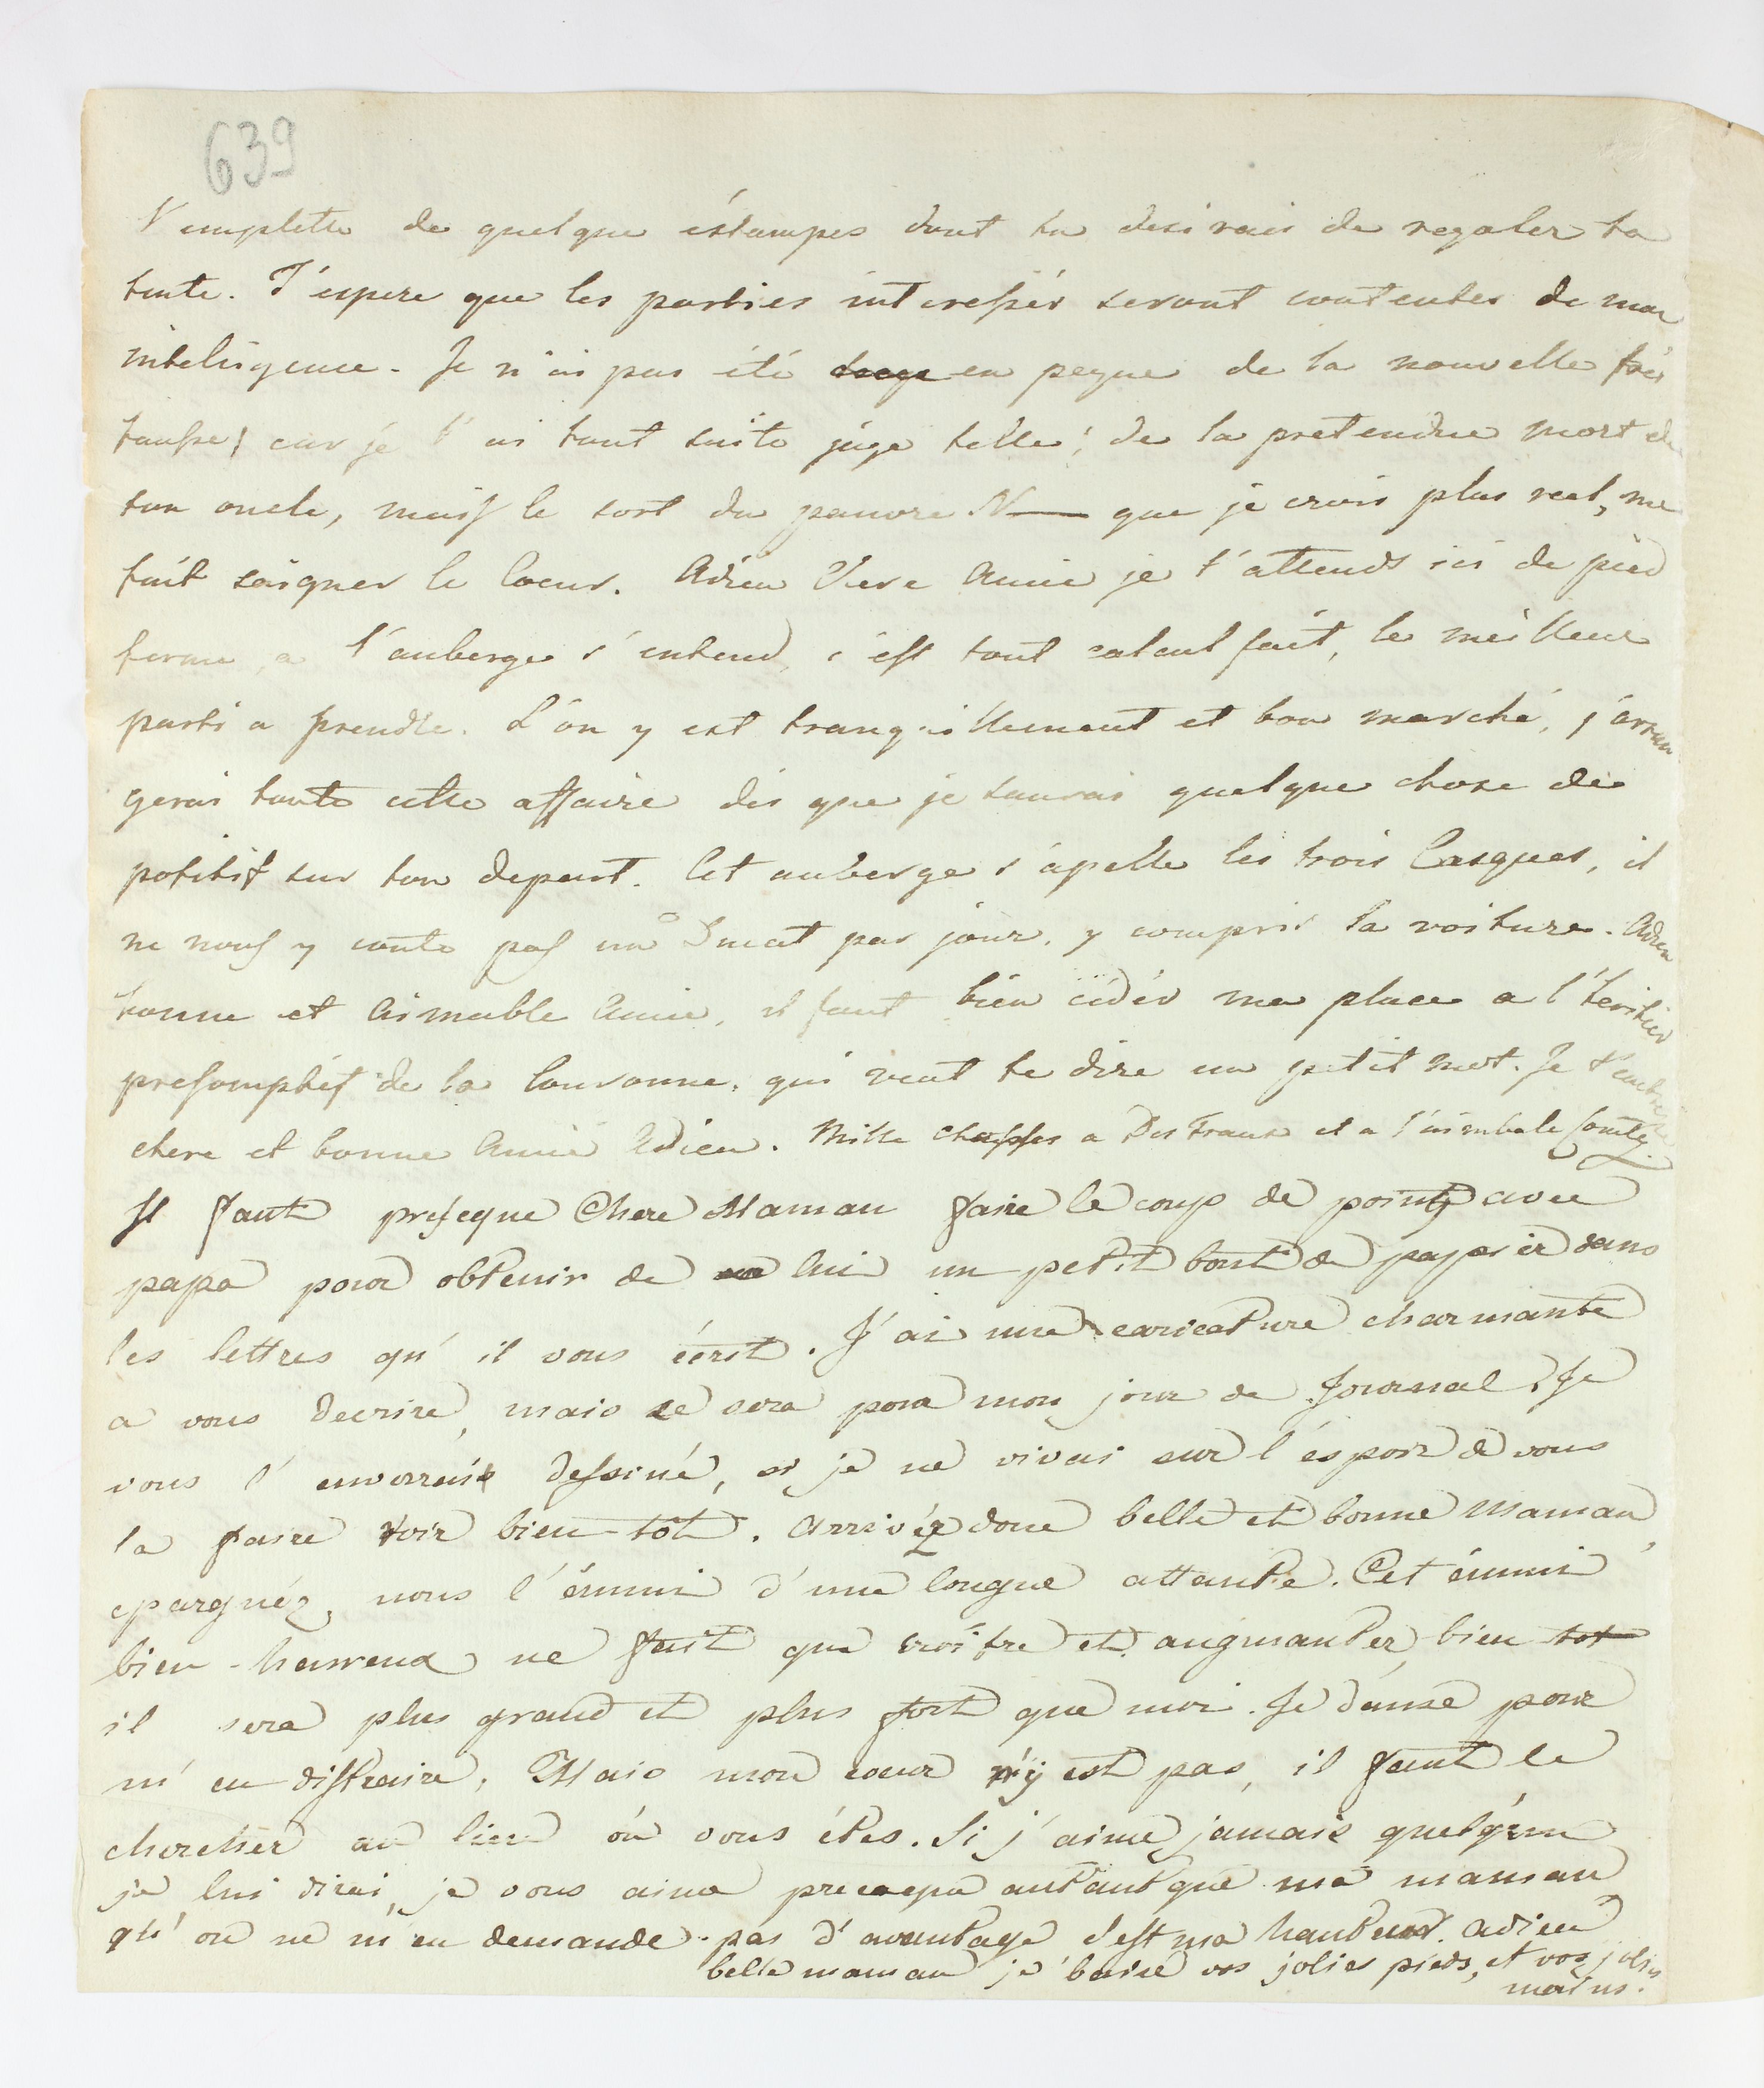 639
l'emplette de quelque éstampes dont tu desirais de regaler ta
tente. J'éspere que les parties interessés seront contentes de mon
inteligence. Je n'ai pas été en peyne de la nouvelle très
fausse; car je l'ai tout suite jugé telle; de la pretendue mort de
ton oncle, mais le sort du pauvre N— que je crois plus reel, me
fait saigner le Coeur. Adieu Chere Amie je t'attends ici de pied
ferme, a l'auberge s'entend, c'est tout calcul fait, le meilleur
parti a prendre. L'on y est tranquillement et bon marché, j'arran
gerai toute cette affaire dés que je saurai quelque chose de
positif sur ton depart. Cet auberge s'apelle les trois Casques, il
ne nous y coute pas un Ducat par jour, y compris la voiture. Adieu
bonne et Aimable Amie, il faut bien cédér ma place a l'héritier
presomptif de la Couronne, qui veut te dire un petit mot. Je t'embrasse
chere et bonne Amie Adieu. Mille chosses a et a
Il faut presque Chere Maman faire le coup de poing avec
papa pour obtenir de lui un petit bout de papier dans
les lettres qu'il vous écrit. J'ai une caricature charmante
a vous decrire, mais ce sera pour mon jour de Journal. Je
vous l'enverrais dessiné, si je ne vivai sur l'éspoir de vous
la faire voir bien-tôt. Arrivéz donc belle et bonne Maman,
epargnéz nous l'énnui d'une longue attante. Cet énnui
bien-heureux ne fait que croître et augmanter, bien tot
il sera plus grand et plus fort que moi. Je danse pour
m'en distraire, Mais mon coeur n'ÿ est pas, il faut le
chercher au lieu où vous étes. Si j'aime jamais quelqu'un
je lui dirai, je vous aime presque autant que ma maman
qu'on ne m'en demande pas d'avantage c'est ma hauteur. adieu
belle maman je baise vos jolies pieds, et vos jolies
mains.